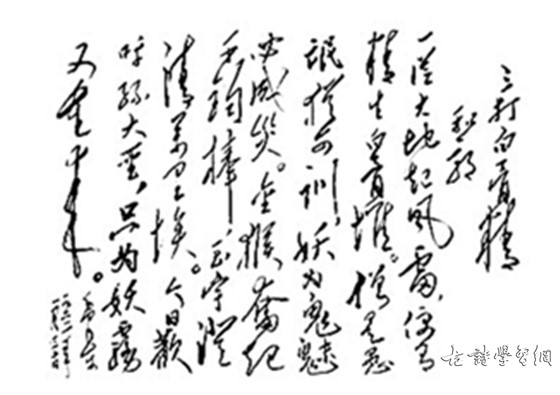 三打白骨精
和郭
一從大地起风雷,便有
精生白骨堆。僧是愚
氓猶可训,妖为鬼蜮
必成災。金猴奮起
千钧棒,玉宇澄
清万里埃。今日歡
呼孫大聖,只为妖霧
又重来。
古詩學習網